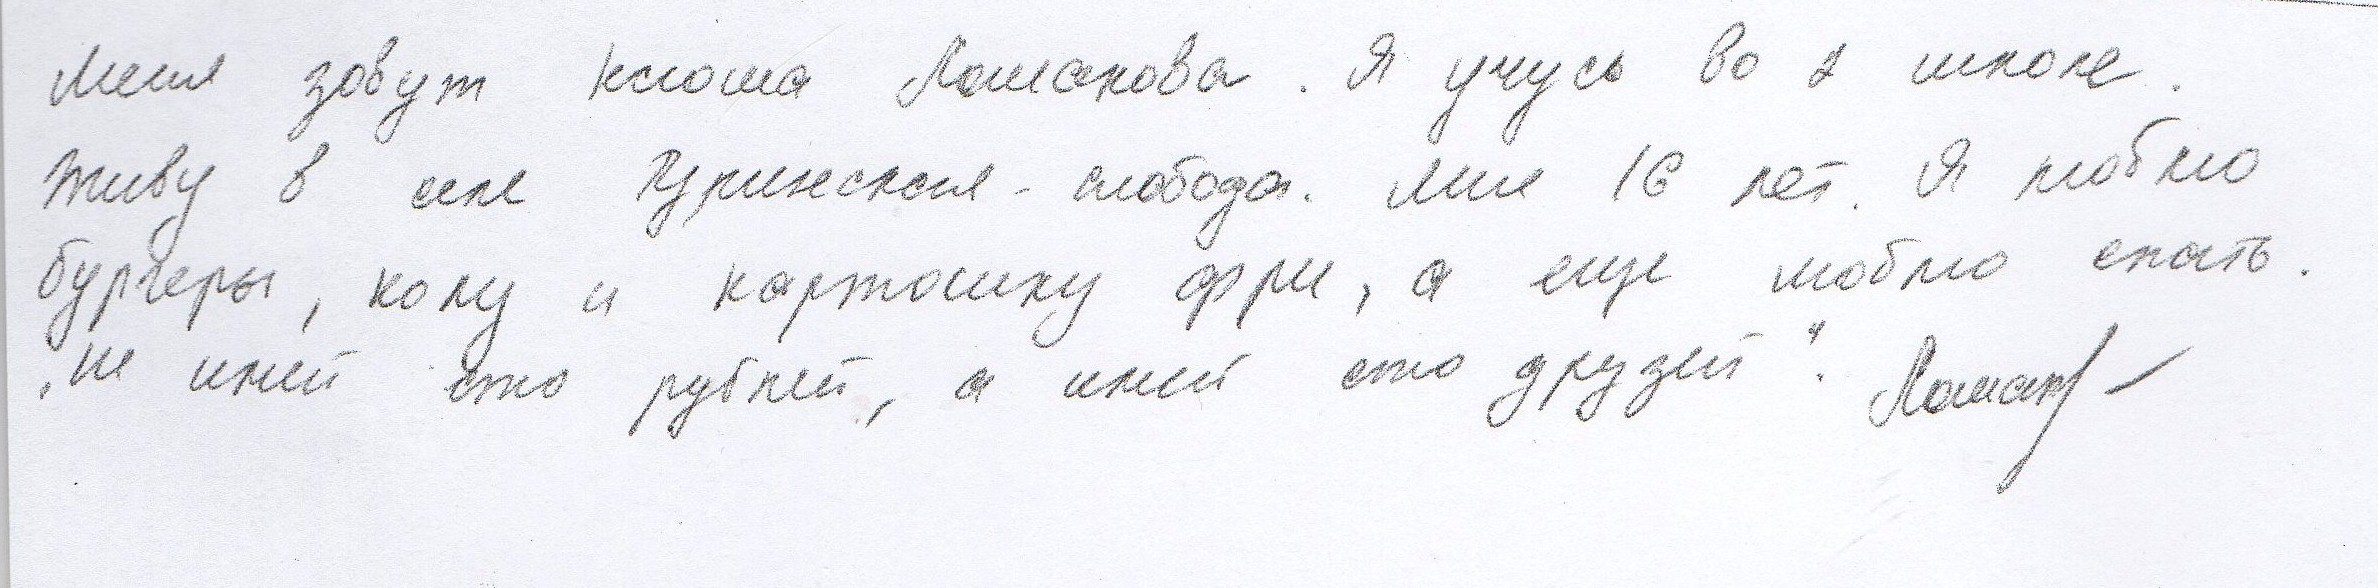 Меня зовут Ксюша Ломакова. Я учусь во 2 школе.
Живу в селе слобода. Мне 16 лет. Я люблю
бургеры, колу и картошку фри, а еще люблю спать.
"Не имей сто рублей, а имей сто друзей".